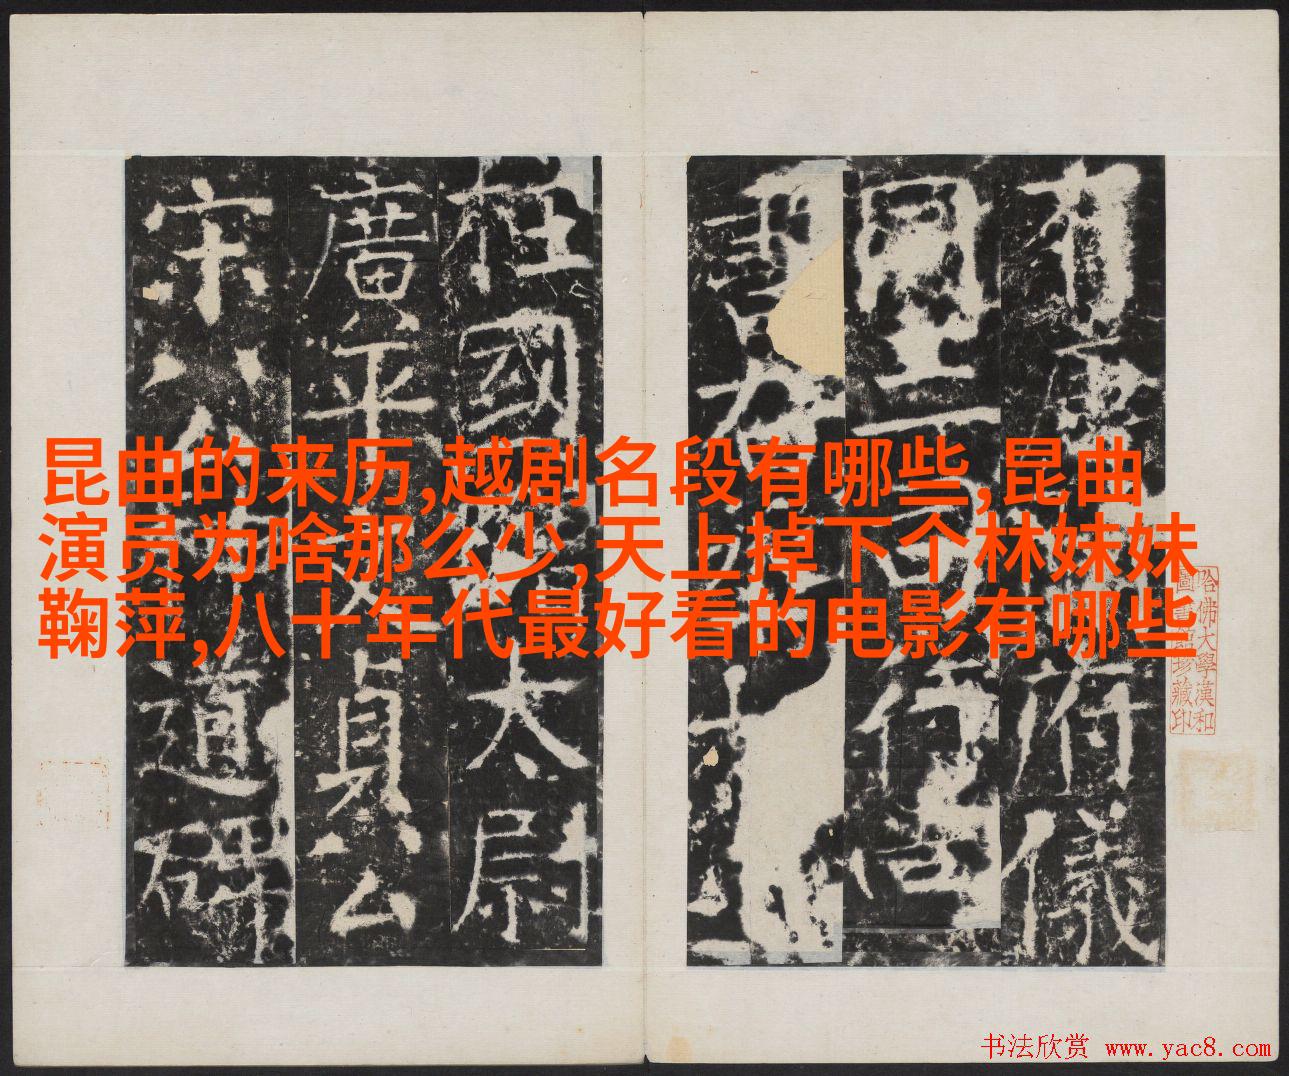 昆曲的来历,越剧名段有哪些,昆曲
演员为啥那么少,天上掉下个林妹妹
鞠萍,八十年代最好看的电影有哪些
有唐府儀
同三司
右
柱國太尉
廣平貞公
宋公道碑
哈佛大學漢和
圖書館珍藏印
书法欣赏 www.yac8.com